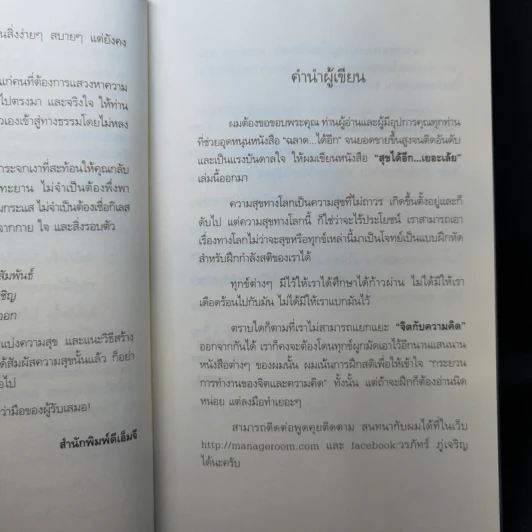 นสิ่งง่ายๆ สบายๆ แต่ยังคง
แก่คนที่ต้องการแสวงหาความ
ไปตรงมา และจริงใจ ให้ท่าน
วเองเข้าสู่ทางธรรมโดยไม่หลง
กระจกเงาที่สะท้อนให้คุณกลับ
ทะยาน ไม่จำเป็นต้องพึ่งพา
นกระแส ไม่จำเป็นต้องเชื่อกิเลส
จากกาย ใจ และสิ่งรอบตัว
สัมพันธ์
เชิญ
ออก
แบ่งความสุข และแนะวิธีสร้าง
ด้สัมผัสความสุขนั้นแล้ว ก็อย่า
อไป
ว่ามือของผู้รับเสมอ!
สำนักพิมพ์ดีเอ็มจี
คำนำผู้เขียน
ผมต้องขอขอบพระคุณ ท่านผู้อ่านและผู้มีอุปการคุณทุกท่าน
ที่ช่วยอุดหนุนหนังสือ “ฉลาด...ได้อีก” จนยอดขายขึ้นสูงจนติดอันดับ
และเป็นแรงบันดาลใจ ให้ผมเขียนหนังสือ “สุขได้อีก...เยอะเลย”
เล่มนี้ออกมา
ความสุขทางโลกเป็นความสุขที่ไม่ถาวร เกิดขึ้นตั้งอยู่และก็
ดับไป แต่ความสุขทางโลกนี้ ก็ใช่ว่าจะไร้ประโยชน์ เราสามารถเอา
เรื่องทางโลกไม่ว่าจะสุขหรือทุกข์เหล่านี้มาเป็นโจทย์เป็นแบบฝึกหัด
สำหรับฝึกกำลังสติของเราได้
ทุกข์ต่างๆ มีไว้ให้เราได้ศึกษาได้ก้าวผ่าน ไม่ได้มีให้เรา
เดือดร้อนไปกับมัน ไม่ได้มีให้เราแบกมันไว้
ตราบใดก็ตามที่เราไม่สามารถแยกแยะ “จิตกับความคิด”
ออกจากกันได้ เราก็คงจะต้องโดนทุกข์ผูกมัดเอาไว้อีกนานแสนนาน
หนังสือต่างๆ ของผมนั้น ผมเน้นการฝึกสติเพื่อให้เข้าใจ “กระบวน
การทำงานของจิตและความคิด” ทั้งนั้น แต่ถ้าจะฝึกก็ต้องอ่านนิด
หน่อย แต่ลงมือทำเยอะๆ
สามารถติดต่อพูดคุยติดตาม สนทนากับผมได้ที่ในเว็บ
http://manageroom.com และ facebook:วรภัทร์ ภู่เจริญ
ได้นะครับ